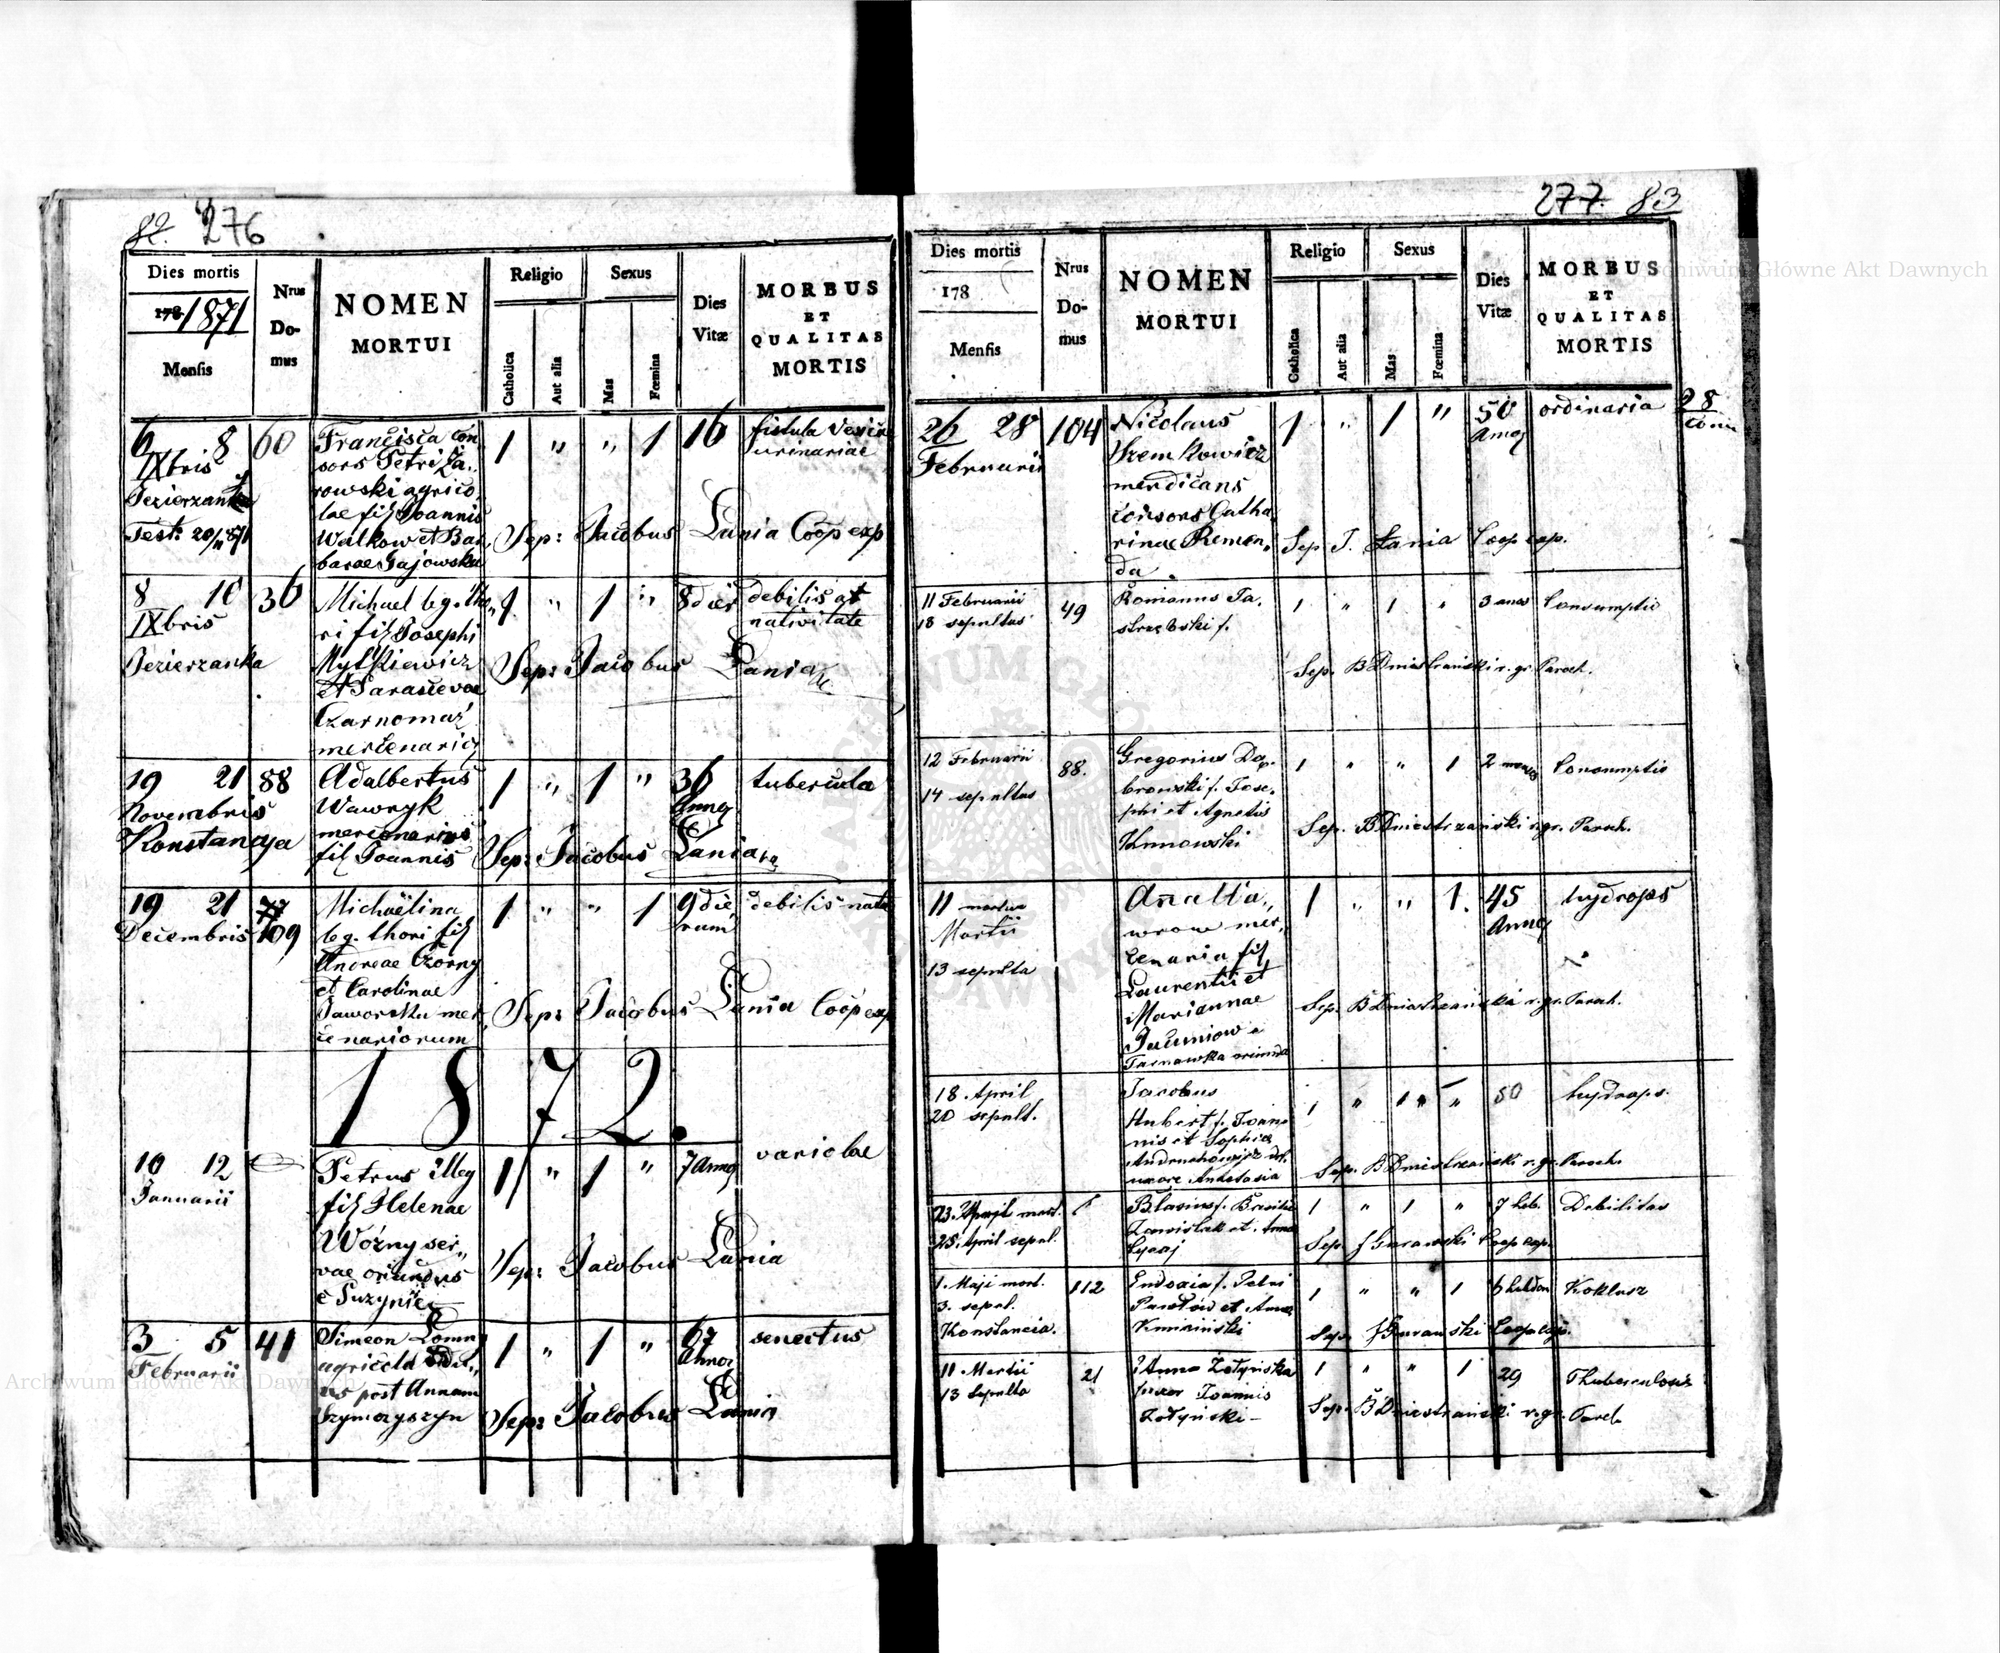 82. 276
Dies mortis
178 1871
Mensis
Nrus
Do-
mus
NOMEN
MORTUI
Religio
Catholica
Aut alia
Sexus
Mas
Fœmina
Dies
Vitæ
MORBUS
ET
QUALITAS
MORTIS
6 8 60
IXbris
Jezierzanka
Francisca con
sors Petri Za,,
rowski agrico,
lae fil Joannis
Walkow et Bar
barae Gajowska
1 " " 1 16
fistula
urinariae
Sep: Jacobus Lania Coop exp
8 10 36
IXbris
Jezierzanka
Michael leg. tho,,
ri fil Josephi
Mytkiewicz
et Parascevae
Czarnomaz
mercenarior
1 " 1 " 8 dier
debilis a
nativitate
Sep: Jacobus Lania
19 21 88
Novembris
Konstancya
Adalbertus
Wawryk
mercenarius
fil Joannis
1 " 1 " 36
Annor
tubercula
Sep: Jacobus Lania
19 21 109
Decembris
Michaëlina
leg. thori fil
Andreae Czorny
et Carolinae
Jaworska mer
cenariorum
1 " " 1 9 die
rum
debilis nata
Sep: Jacobus Lania Coop exp
1872.
10 12
Januarii
Petrus Illeg
fil Helenae
Woźny ser,,
vae oriundus
e
1 " 1 " 7 Annor
variolae
Sep: Jacobus Lania
3 5 41
Februarii
Simeon
agricola
us post Annam
Szymczyszyn
1 " 1 " 67
Annor
senectus
Sep: Jacobus Lania
277. 83
Dies mortis
178
Mensis
Nrus
Do-
mus
NOMEN
MORTUI
Religio
Catholica
Aut alia
Sexus
Mas
Fœmina
Dies
Vitæ
MORBUS
ET
QUALITAS
MORTIS
26 28 104
Februarii
Nicolaus
Szemkowicz
mendicans
consors Catha,
rinae Remen,
da
1 " 1 " 50
Annor
ordinaria
28
Sep J. Lania Coop exp.
11 Februarii
13 sepultus
49
Romanus Ja,
strzębski f.
1 " 1 " 3 annor
Consumptio
Sep. B Dniestrzański r. gr. Paroch.
12 Februarii
14 sepultus
88.
Gregorius Dą,
browski f. Jose,
phi et Agnetis
1 " " 1 2 mensis
Consumptio
Sep. B Dniestrzański r. gr. Paroch.
11
Martii
13 sepulta
mer,
cenaria fil
Laurentii et
Mariannae
Tarnawka oriunda
1 " " 1. 45
Annor
hydrops
Sep. B Dniestrzański r. gr. Paroch.
18. April
20 sepult.
Jacobus
Hubert f. Joan
nis et Sophia
Andruchowicz
uxore Anastasia
1 " 1 " 50
hydrops.
Sep. B Dniestrzański r. gr. Paroch
23. April mort.
25. April sepul.
Blasius f. Basilii
et Anna
1 " 1 " 7 heb.
Debilitas
Sep. J Gurawski Coop exp.
1. Maji mort.
3. sepul.
Konstancia.
112
Eudoxia f. Petri
Pawłów et Anna
1 " " 1 6 hebdom
Koklusz
Sep. J Gurawski Coop exp.
11 Martii
13 Sepulta
21
Anna Zołyńska
uxor Joannis
Zołyński –
1 " " 1 29
Thuberculosis
Sep. B Dniestrzański r. gr. Paroch
Archiwum Główne Akt Dawnych
Archiwum Główne Akt Dawnych
ARCHIWUM GŁÓWNE AKT DAWNYCH